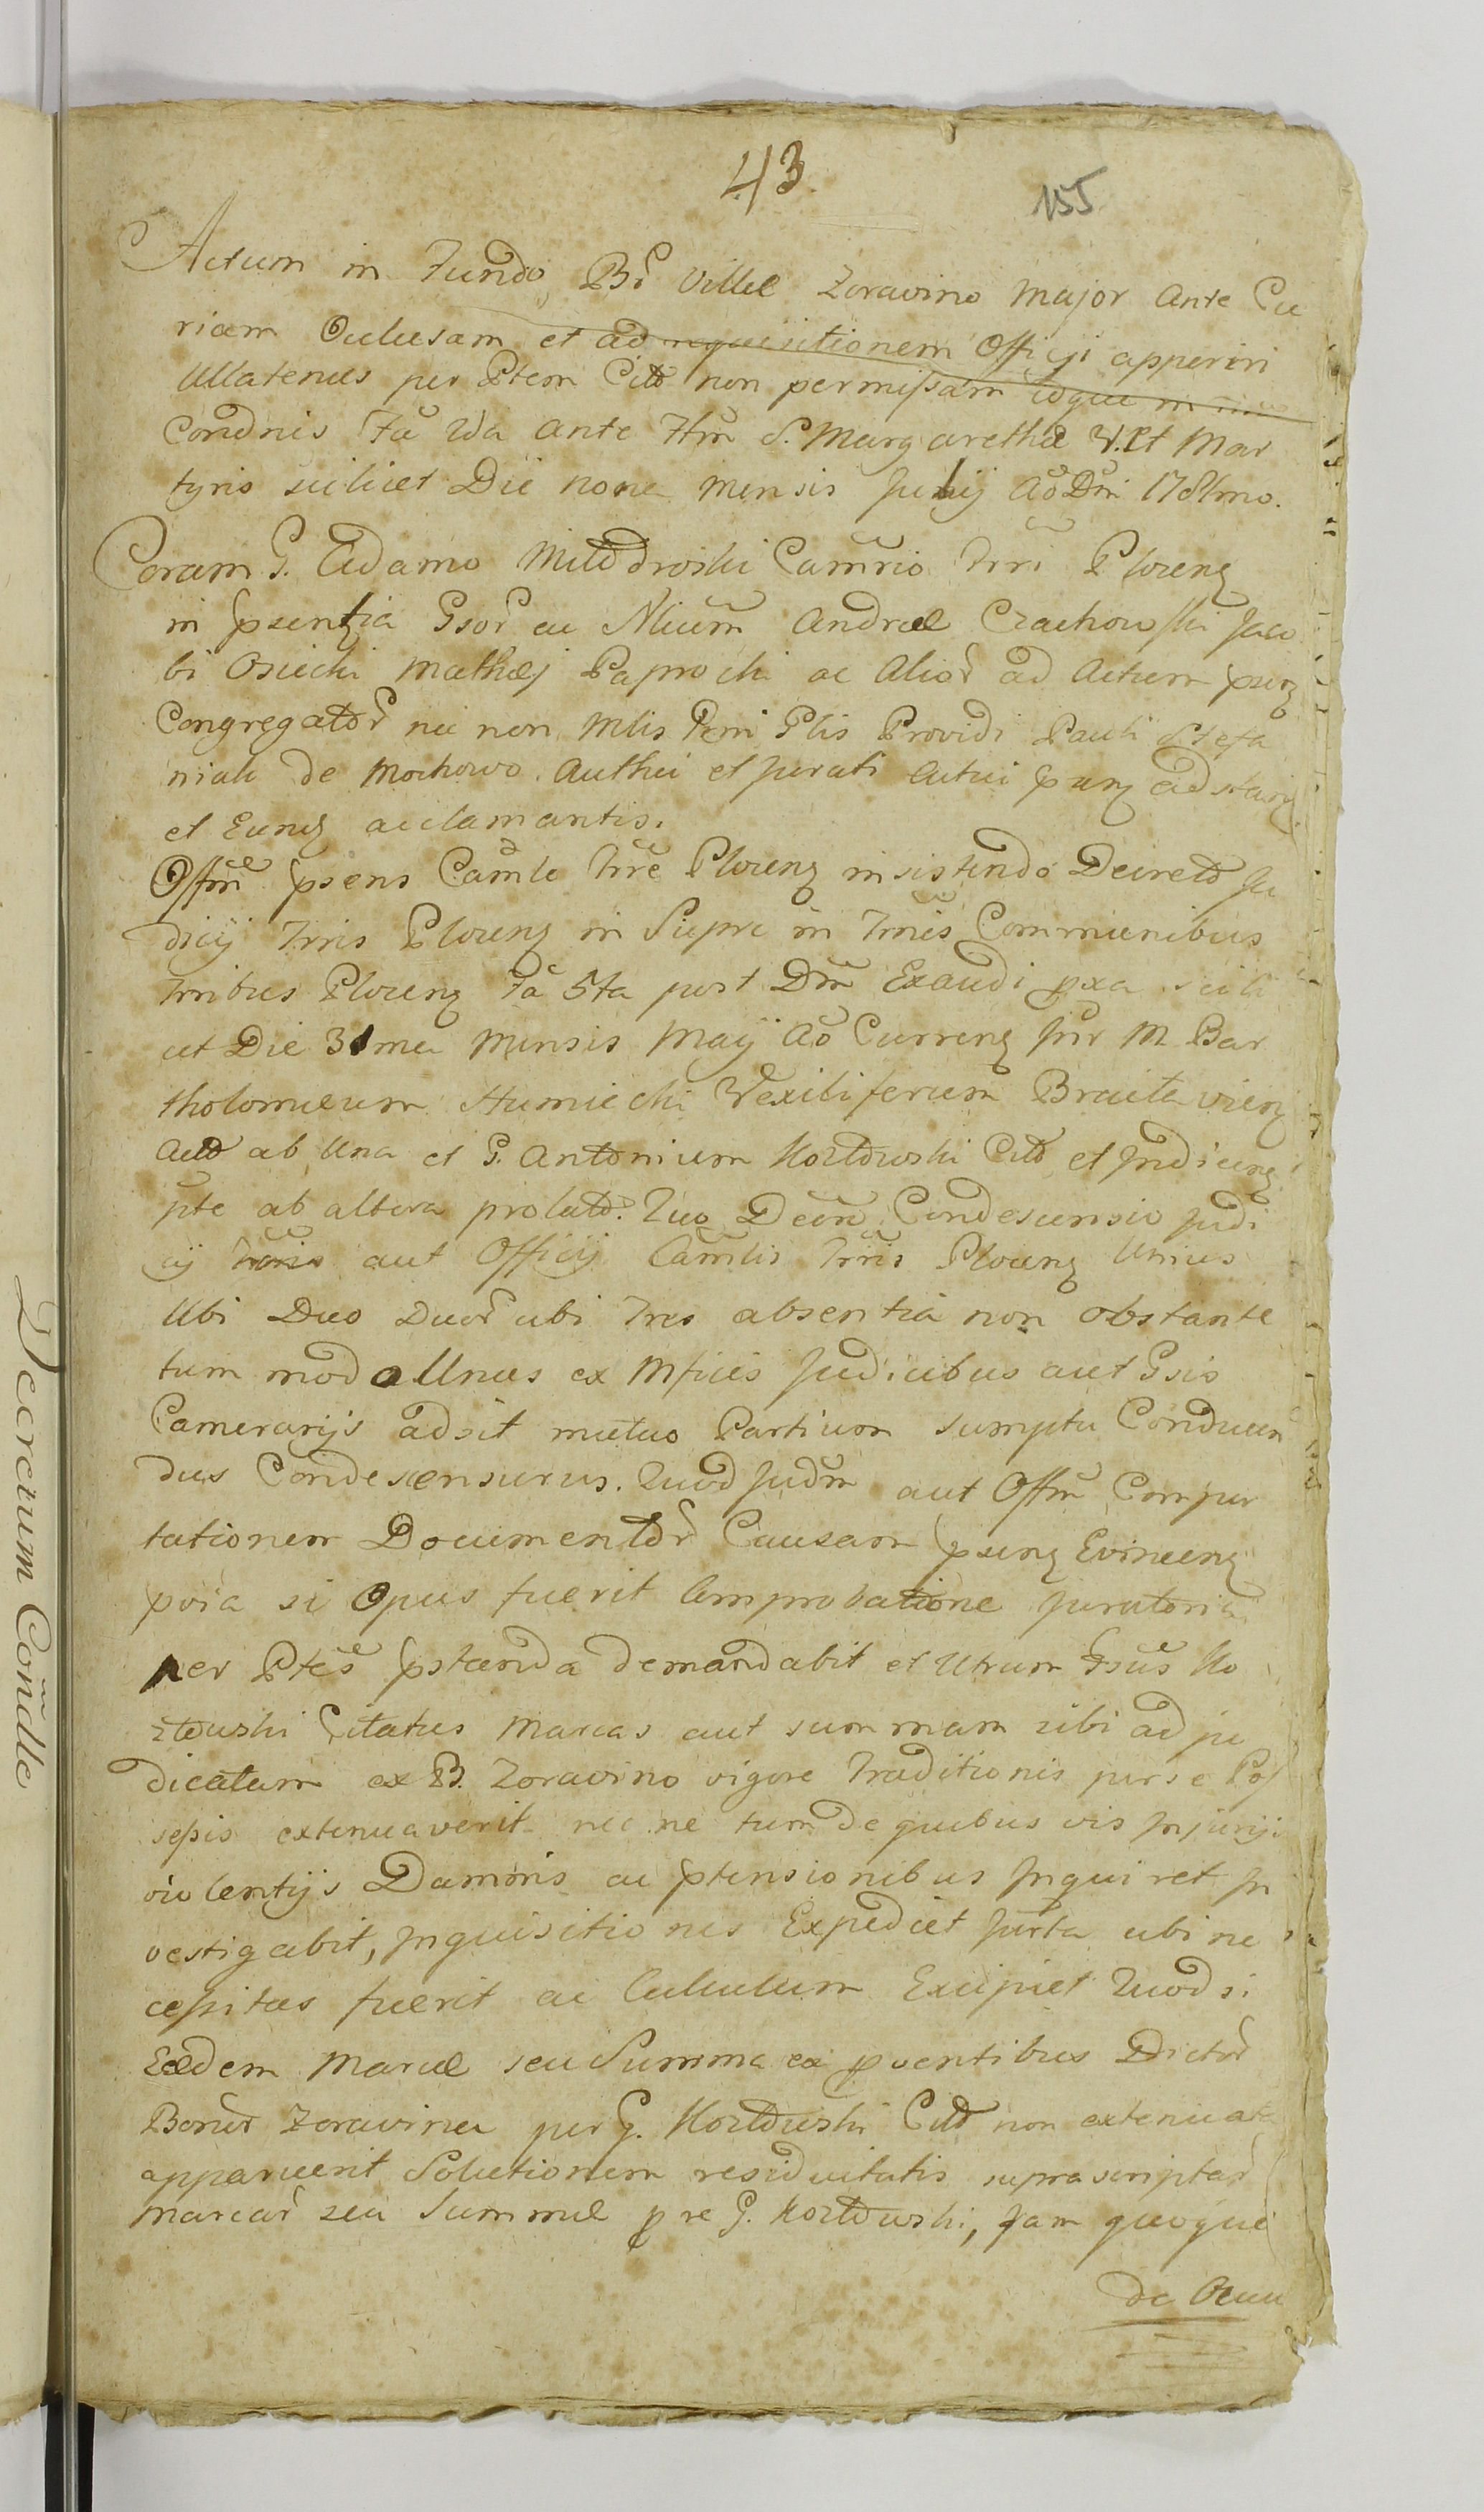 43.
155
Actum in Fundo Br̃ Villæ Zoravino Major Ante Cu
riam Oclusam et ad requisitionem Officÿ apperiri
Ullatenus per Ptem Citt̃ non permissam idque in
Condnis F̃a 2da Ante Ftm̃ S. Margarethæ V. Et Mar
tyris scilicet Die nona Mensis Julÿ Aõ Dni 1781mo.
Coram G. Adamo Miłodroski Camrio Trri Plocenʒ
in psentia Gsor̃ ac Nlium̃ Andreæ Czachowski Jaco
bi Osiecki Mathæj Paprocki ac Alior̃ ad Actum psenʒ
Congregator̃ nec non Mlis Rgni Glis Providi Pauli Stefa
niak de Mochowo Authci et Jurati Actui psenʒ adstanʒ
et Eunʒ acclamantis.
Offm̃ psens Camle Trre Plocenʒ insistendo Decreto Ju
dicÿ Trris Plocenʒ in Sierpc in Trnis Communibus
Trribus Plocenʒ F̃a 5ta post Dm̃ Exaudi pxa scili
cet Die 31ma Mensis Maÿ Aõ Currenʒ Intr M. Bar
tholomeum Humiecki Vexiliferum Braclavienʒ
Actõ ab Una et G. Antonium Kozłowski Citt̃ et Indicenʒ
pte ab altera prolato. Quo Decto Condescensio Judi
cÿ Trris aut Officÿ Camlis Trris Plocenʒ Unius
Ubi Duo Duor̃ ubi Tres absentia non obstante
tum modo Unus ex Mficis Judicibus aut Gsis
Camerarÿs adsit mutuo Partium sumptu Conducen
dus Condescensurus. Quod Judm̃ aut Offm̃ Compor
tationem Documentor̃ Causam psenʒ Evincenʒ
pvia si Opus fuerit Comprobatione Juratoria
per Ptes pstanda demandabit et Utrum Gsus Ko
złowski Citatus Marcas aut summam sibi ad ju
dicatam ex B. Zoravino vigore Traditionis per se Pos
sessis extenuaverit nec ne tum de quibus vis Injurÿs
violentÿs Damnis ac ptensionibus Inquiret In
vestigabit, Inquisitiones Expediet Jurta ubi ne
cessitas fuerit ac Calculum Excipiet Quod si
Eædem Marcæ seu Summa ex pventibus Dictor̃
Bonor̃ Zoravino per G. Kozłowski Citt̃ non extenuata
apparuerit Solutionem residuitatis suprascriptar̃
Marcar̃ seu Summæ p re G. Kozłowski, Jam quoque
de
Decretum Coñdlle